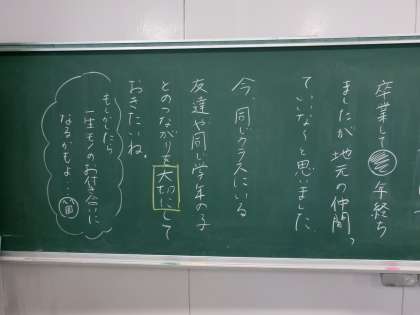 卒業して 年経ち
ましたが地元の仲間っ
ていいな〜と思いました
今、同じクラスにいる
友達や同じ学年の子
とのつながりを大切にして
おきたいね。
もしかしたら
一生モノのお付き合いに
なるかもよ…